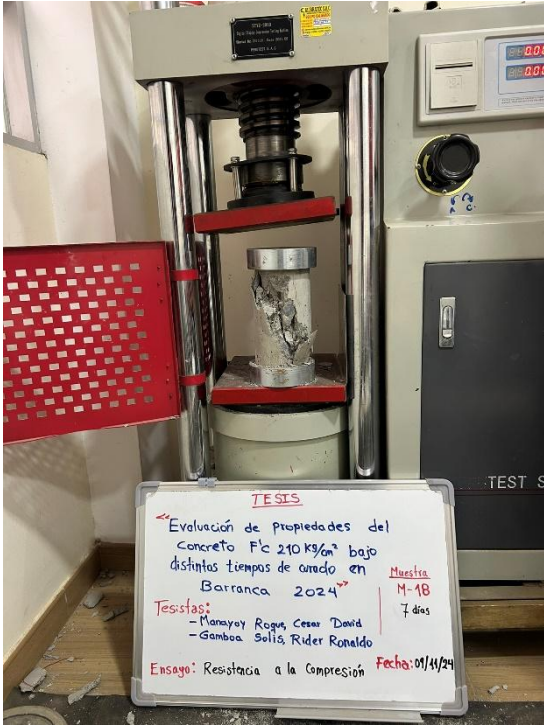 TESIS
"Evaluación de propiedades del
concreto F'c 210 Kg/cm² bajo
distintos tiempos de curado en
Barranca 2024"
Muestra
M-18
7 días
Tesistas:
- Manayay Roque, Cesar David
- Gamboa Solis, Rider Ronaldo
Ensayo: Resistencia a la Compresión
Fecha: 09/11/24
TEST S